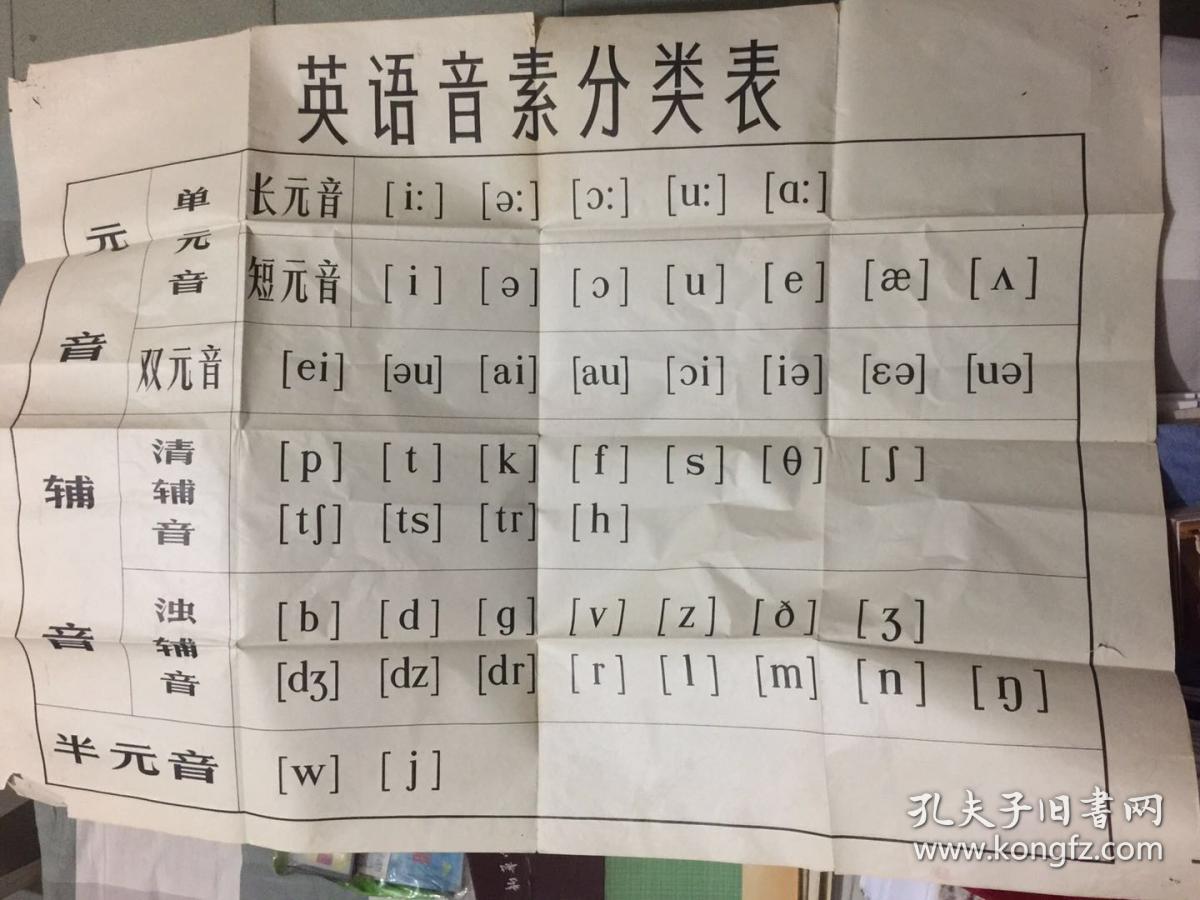 英语音素分类表
元音
单元音
长元音 [i:] [ə:] [ɔ:] [u:] [ɑ:]
短元音 [i] [ə] [ɔ] [u] [e] [æ] [ʌ]
双元音 [ei] [əu] [ai] [au] [ɔi] [iə] [ɛə] [uə]
辅音
清辅音 [p] [t] [k] [f] [s] [θ] [ʃ]
[tʃ] [ts] [tr] [h]
浊辅音 [b] [d] [g] [v] [z] [ð] [ʒ]
[dʒ] [dz] [dr] [r] [l] [m] [n] [ŋ]
半元音 [w] [j]
孔夫子旧書网
www.kongfz.com